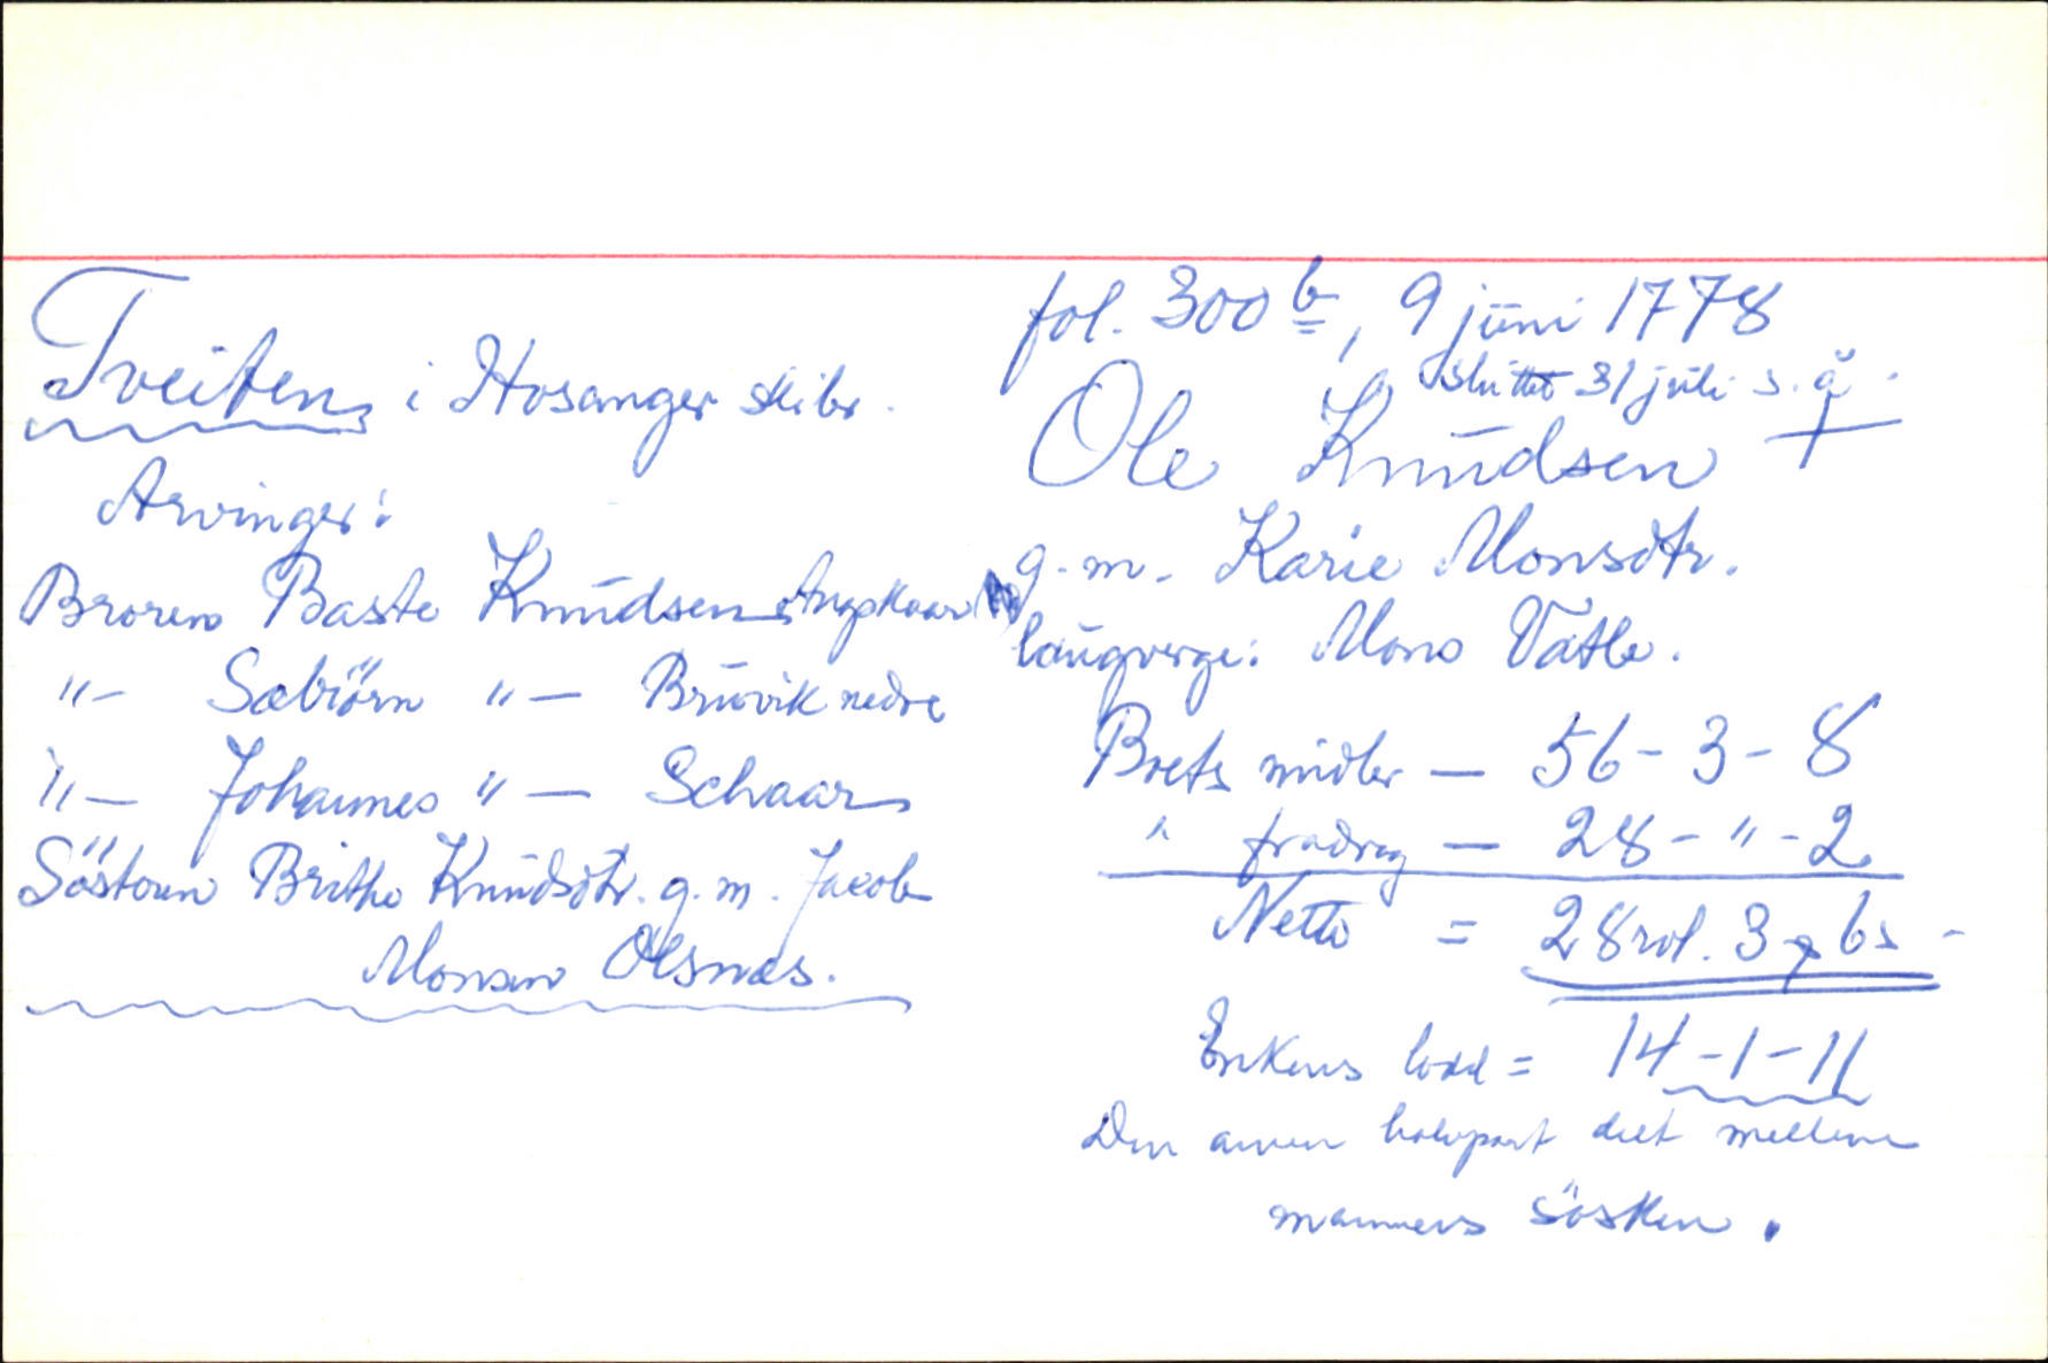 Tveiten i Hosanger skibr.
Arvinger:
Broren Baste Knudsen Angskaar
"- Sæbiörn "- Bruvik nedre
"- Johannes "- Schaar
Söstoren Brithe Knudsdtr. g. m. Jacob
Monsen Olsnes.
fol. 300 b, 9 juni 1778
Sluttet 31 juli s. å.
Ole Knudsen +
g. m. Karie Monsdtr.
laugverge: Mons Vatle.
Boets midler — 56 - 3 - 8
" fradrag — 28 - " - 2
Netto = 28 rdl. 3 # 6 s -
Enkens lodd = 14 - 1 - 11
Den annen halvpart delt mellem
mannens sösken.